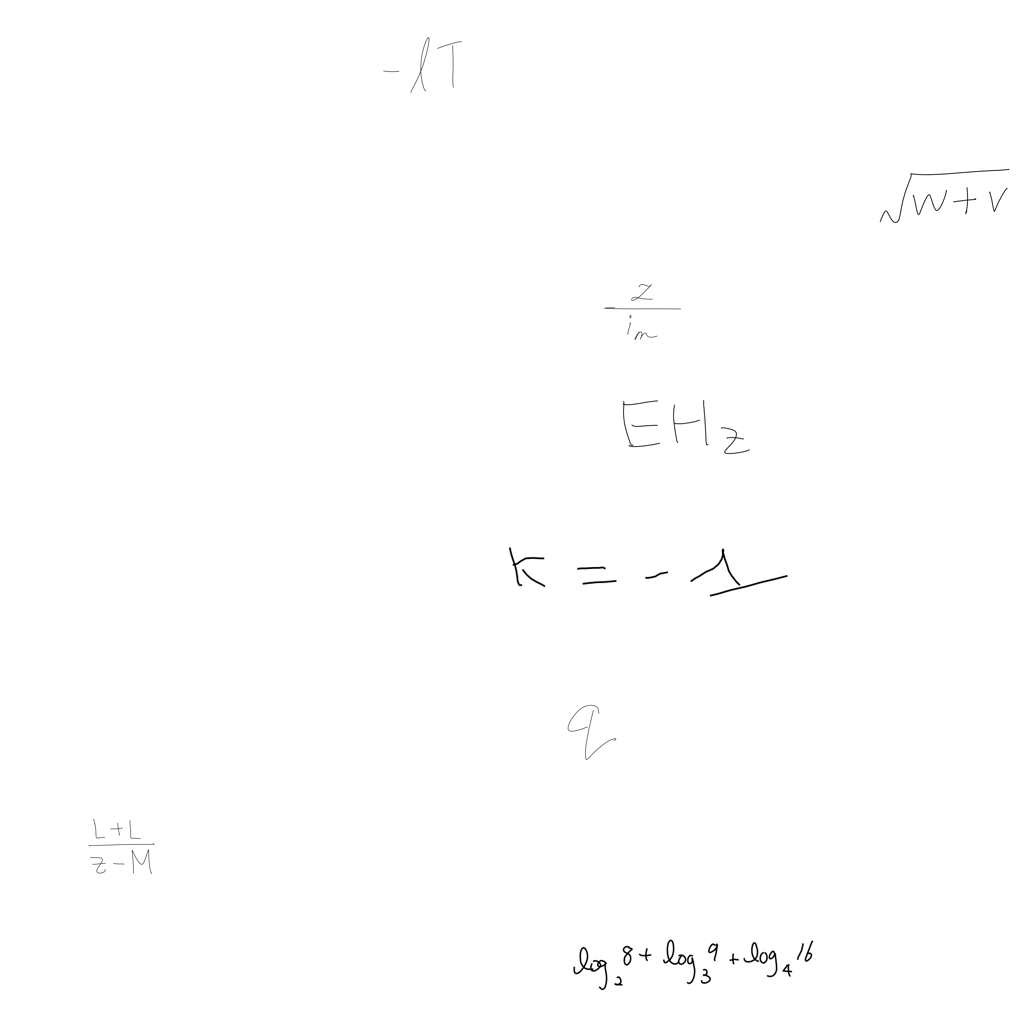 -lT
√(w+v)
z/i_m
EH_z
k = - λ
q
(L+L)/(z-M)
log_2 8 + log_3 9 + log_4 16